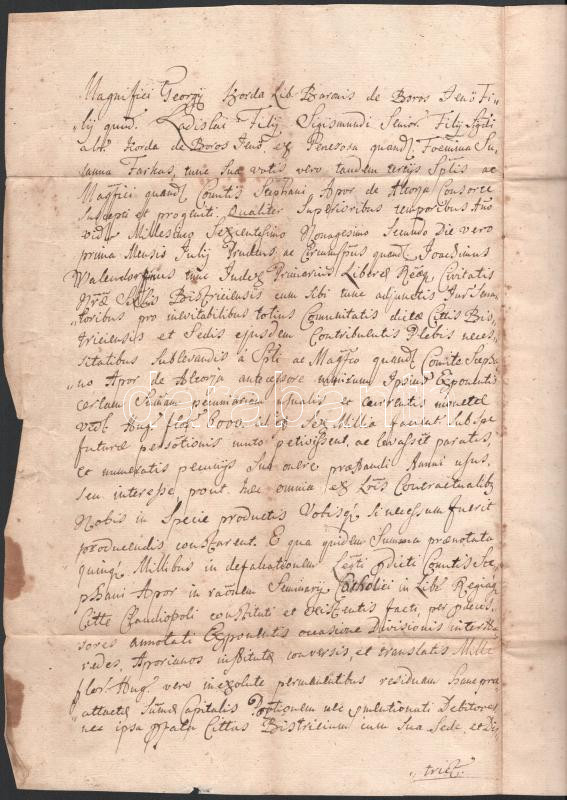 Magnifici Georgij Jósda Lib. Baronis de Boros Jenö Fi¬
lij quond. Ladislai Filij Sigismundi Senior. Filij
de Boros Jenö, ex Generosa quond. Foemina Su¬
sanna Farkas, tunc Suae votis vero tandem tertijs Sptlis ac
Magfici quond. Comitis Stephani Apor de Altorja Consorte
suscepti et progeniti. Qualiter Superioribus temporibus Anno
Millesimo Sexcentesimo Nonagesimo Secundo Die vero
prima Mensis Julij Prudens ac Circumsptus quond. Joachimus
tunc Judex Primarius Liberae Regiaq. Civitatis
Nrae Bistriciensis cum sibi tunc adjunctis Jur. Sena¬
toribus pro inevitabilibus totius Comunitatis dictae Cittis Bis¬
triciensis et Sedis ejusdem Contribuentis Plebis neces¬
sitatibus sublevandis a Sptli ac Magfico quond. Comite Stepha
no Apor de Altorja antecessore nimirum Ipsius Exponentis
certam Sumam pecuniariam usualis et currentis monetae
Hung. flor. 6000. idest Sex Millia faciunt. sub spe
futurae persolutionis muto petivissent, ac levassent paratis,
et numeratis pecunijs sub onere praestandi Annui usus,
seu interesse, prout haec omnia ex Lris Contractualibq
Nobis in Specie productis Vobisq. si necessum fuerit
producendis constarent. E qua quidem Summa praenotata
quinq. Millibus in defalcationem Legti pdicti Comitis Ste
phani Apor in raonem Seminarij Catholici in Lib. Regiaq.
Citte Claudiopoli constituti et existentis facti, per
sores annotati Exponentis occasione Divisionis inter Hae
redes, Aporianos institutae conversis, et translatis Mille
flor. Hung. vero inexolute permanentibus residuam hanc prae
attactae Sumae Capitalis Portionem nec mentionati Debitores
nec ipsa Cittas Bistricium cum Sua Sede, et Di¬
strict.
darabanth